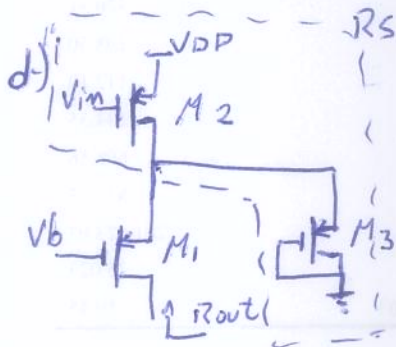 RS
VDD
d)
Vin
M2
Vb
M1
M3
Rout